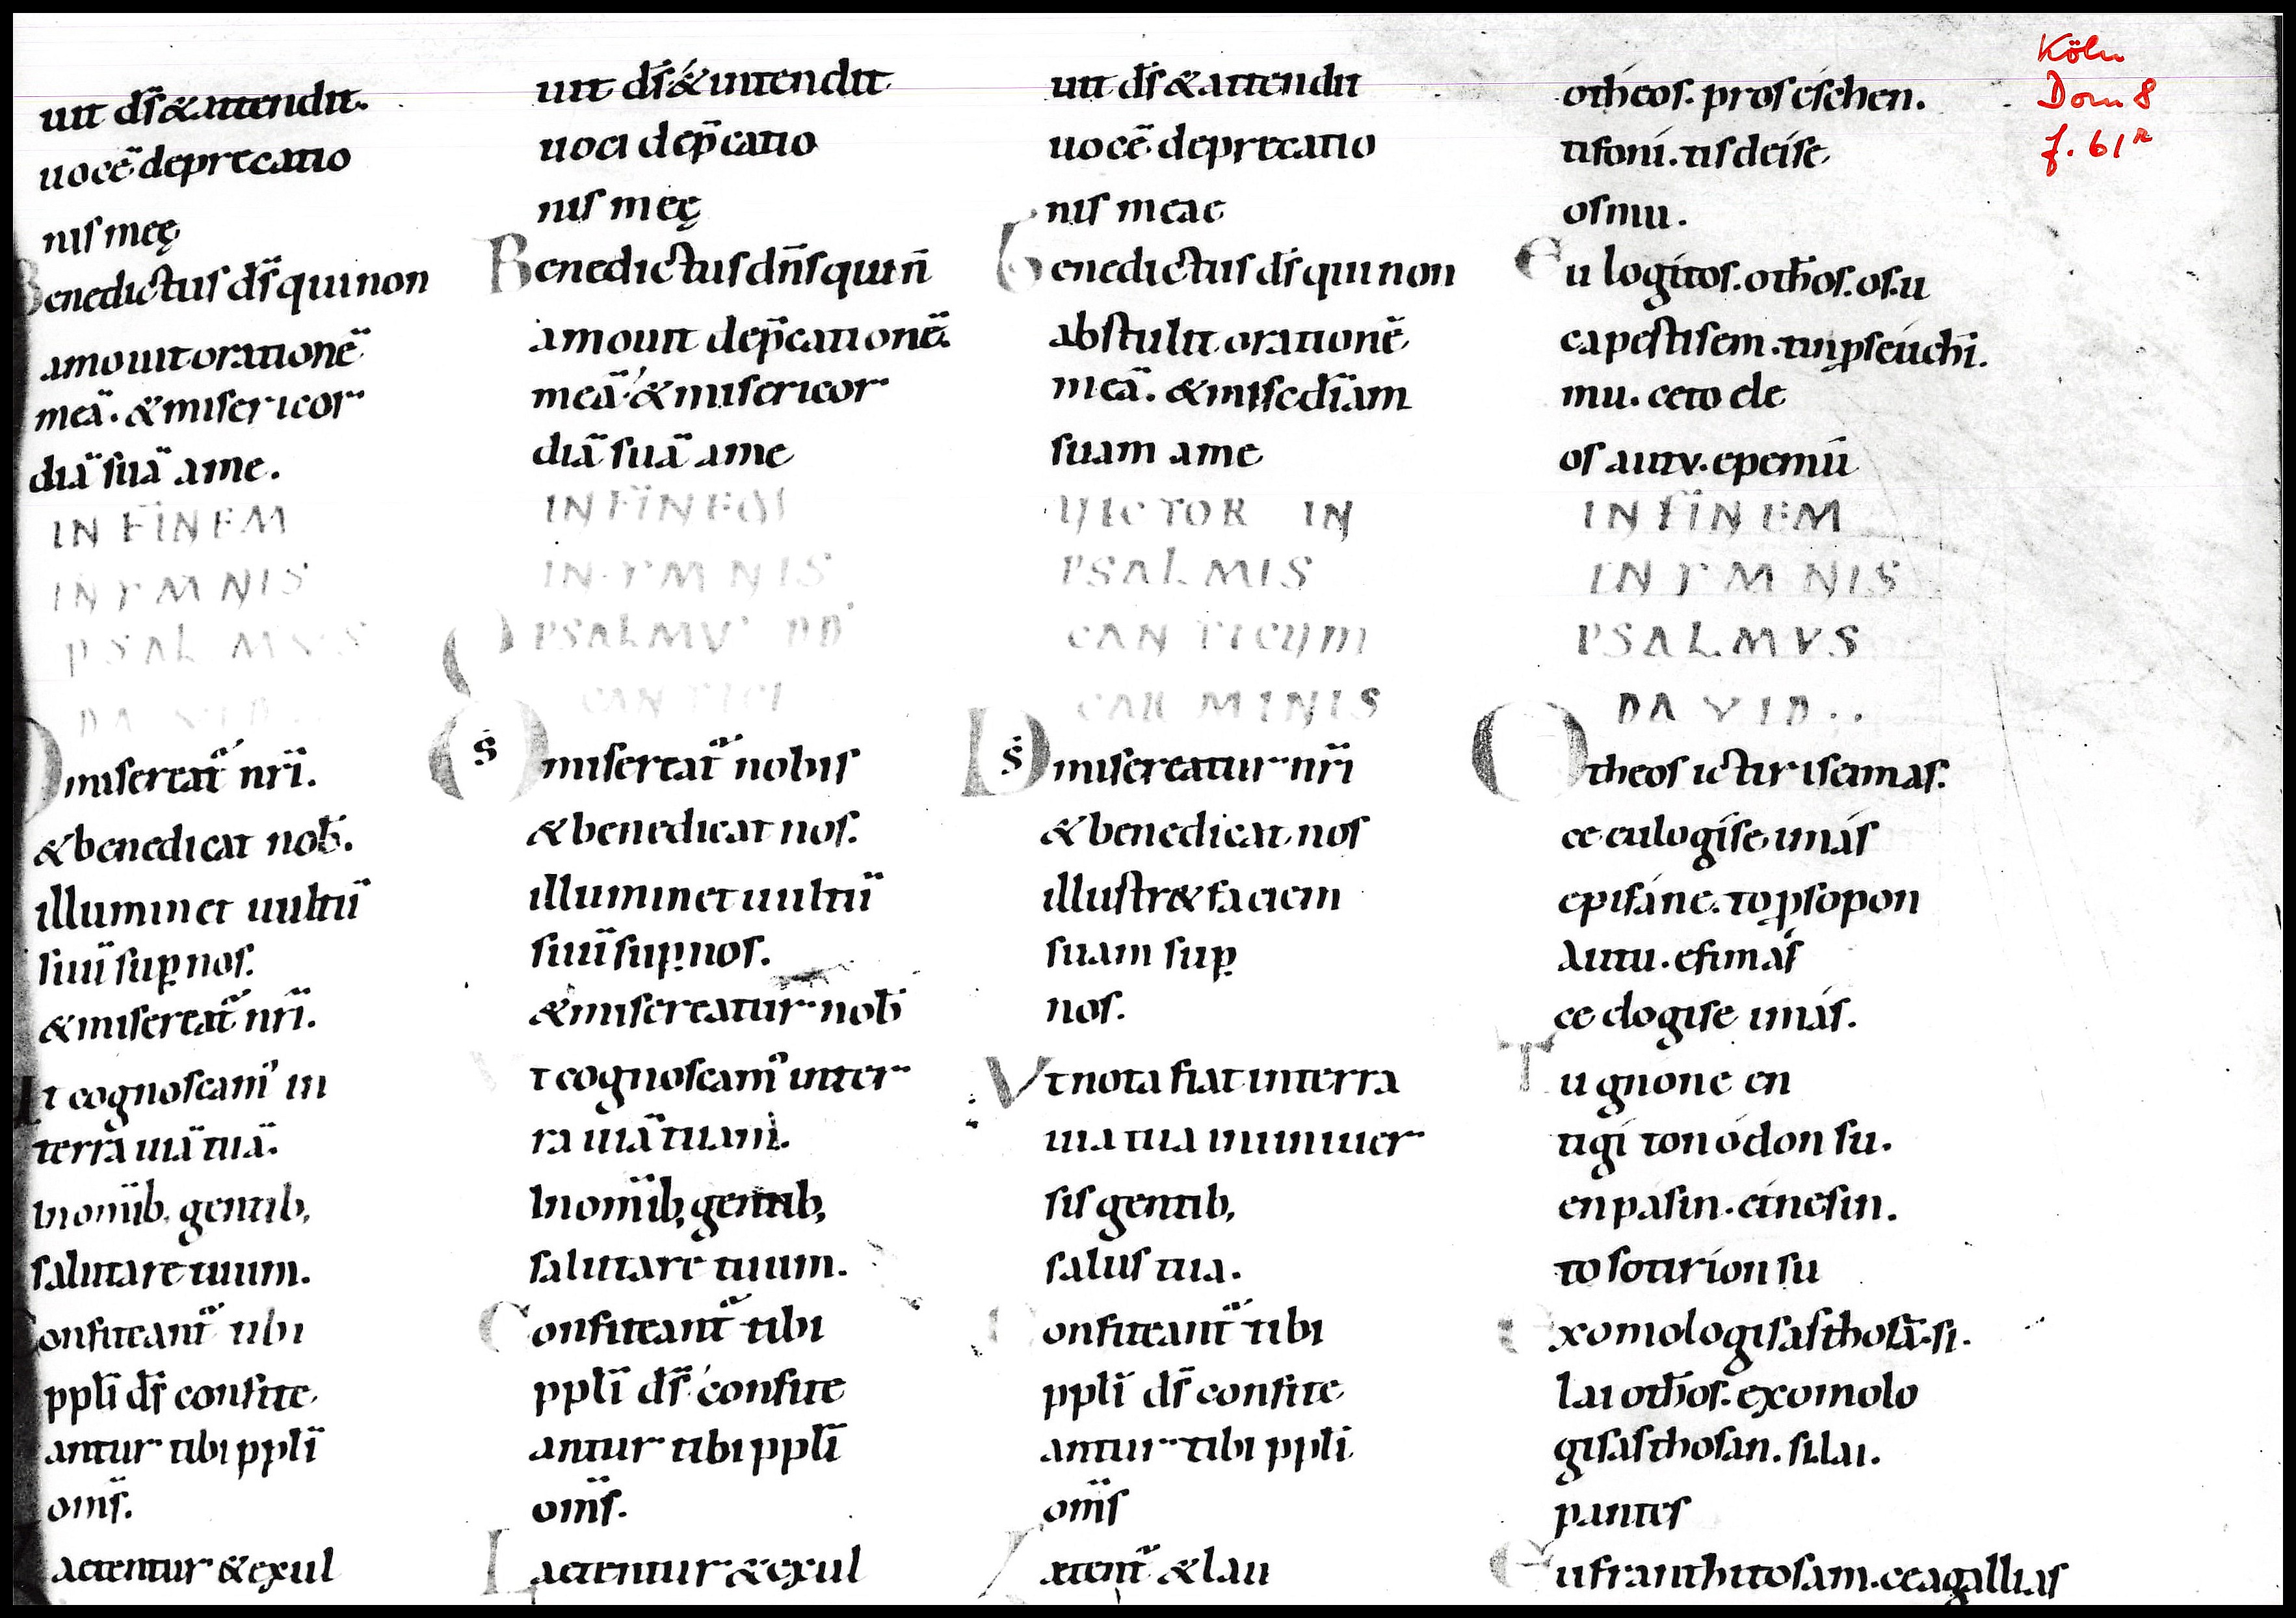 uit ds̄ & attendit.
uocē deprecatio
nis meę
Benedictus ds̄ qui non
amouit orationē
meā. & misericor
diā suā a me.
IN FINEM
IN YMNIS
PSALMVS
DA
misereat̄ nrī.
& benedicat nob̄.
illuminet uultū
suū sup̱ nos.
& misereat̄ nrī.
Ut cognoscam' in
terra uiā tuā.
In om̄ib; gentib;
salutare tuum.
Confiteant̄ tibi
pplī ds̄ confite
antur tibi pplī
om̄s.
aetentur & exul
uit ds̄ & intendit
uoci dep̄catio
nis meę
Benedictus dn̄s qui n̄
amouit dep̄cationē
meā & misericor
diā suā a me
IN FINEM
IN YMNIS
PSALMV' DD
CANTICI
D s̄ misereat̄ nobis
& benedicat nos.
illuminet uultū
suū sup̱ nos.
& misereatur nob̄
t cognoscam' in ter
ra uiā tuam.
In om̄ib; gentib;
salutare tuum.
Confiteant̄ tibi
pplī ds̄ confite
antur tibi pplī
om̄s.
Laetentur & exul
uit ds̄ & attendit
uocē deprecatio
nis meae
benedictus ds̄ qui non
abstulit orationē
meā. & misc̄diam
suam a me
VICTOR IN
PSALMIS
CANTICUM
CARMINIS
D s̄ misereatur nrī
& benedicat nos
illustr& faciem
suam sup̱
nos.
Vt nota fiat in terra
uia tua in uniuer
sis gentib;
salus tua.
Confiteant̄ tibi
pplī ds̄ confite
antur tibi pplī
om̄s
Lętent̄ & lau
otheos. proseschen.
tifoni. tis deise
osmu.
eu logitos. oth̄os. os. u
capestisem. tinp̱seuchi.
mu. ceto ele
os autv. epemū
IN FINEM
IN YMNIS
PSALMVS
DAVID..
Otheos ictirise imas.
ce eulogise imás
epifáne. to p̱sopon
autu. efimás
ce elogise imás.
Tu gnone en
tigi ton ódon su.
en pasin. etnesin.
to sotirion su
exomologisasthosā. si.
lai oth̄os. exomolo
gisasthosan. si. lai.
pantes
eufranthitosam. ce agallias
Köln
Dom 8
f. 61ʳ